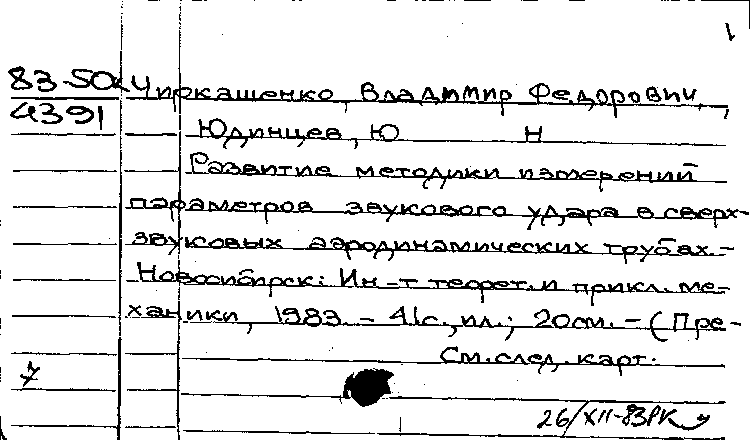 1
83-5024 Чиркашенко, Владимир Федорович,
4391
Юдинцев, Ю Н
Развитие методики измерений
параметров звукового удара в сверх-
звуковых аэродинамических трубах.-
Новосибирск: Ин-т теорет. и прикл. ме-
ханики, 1983. - 41с., ил.; 20см. - (Пре-
См. след. карт.
7
26/XII-83